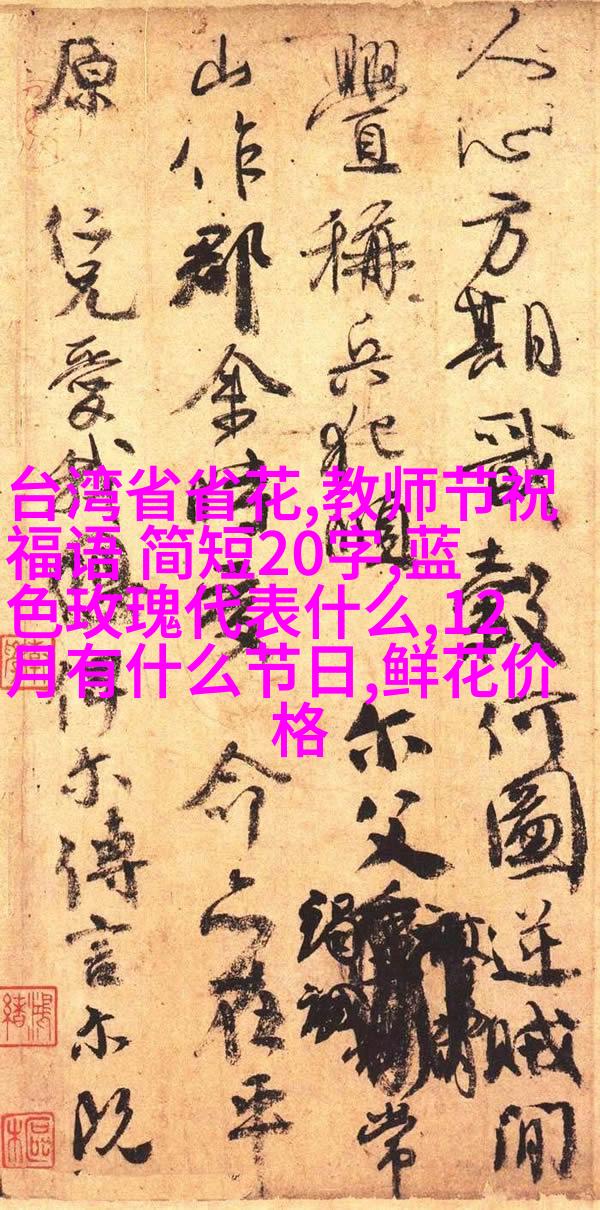 人心方期戩穀何圖逆賊間
釁稱兵犯順 尔父 常
山作郡余時受 命亦在平
原 仁兄愛我俾尔傳言尔既
台湾省省花,教师节祝
福语 简短20字,蓝
色玫瑰代表什么,12
月有什么节日,鲜花价
格